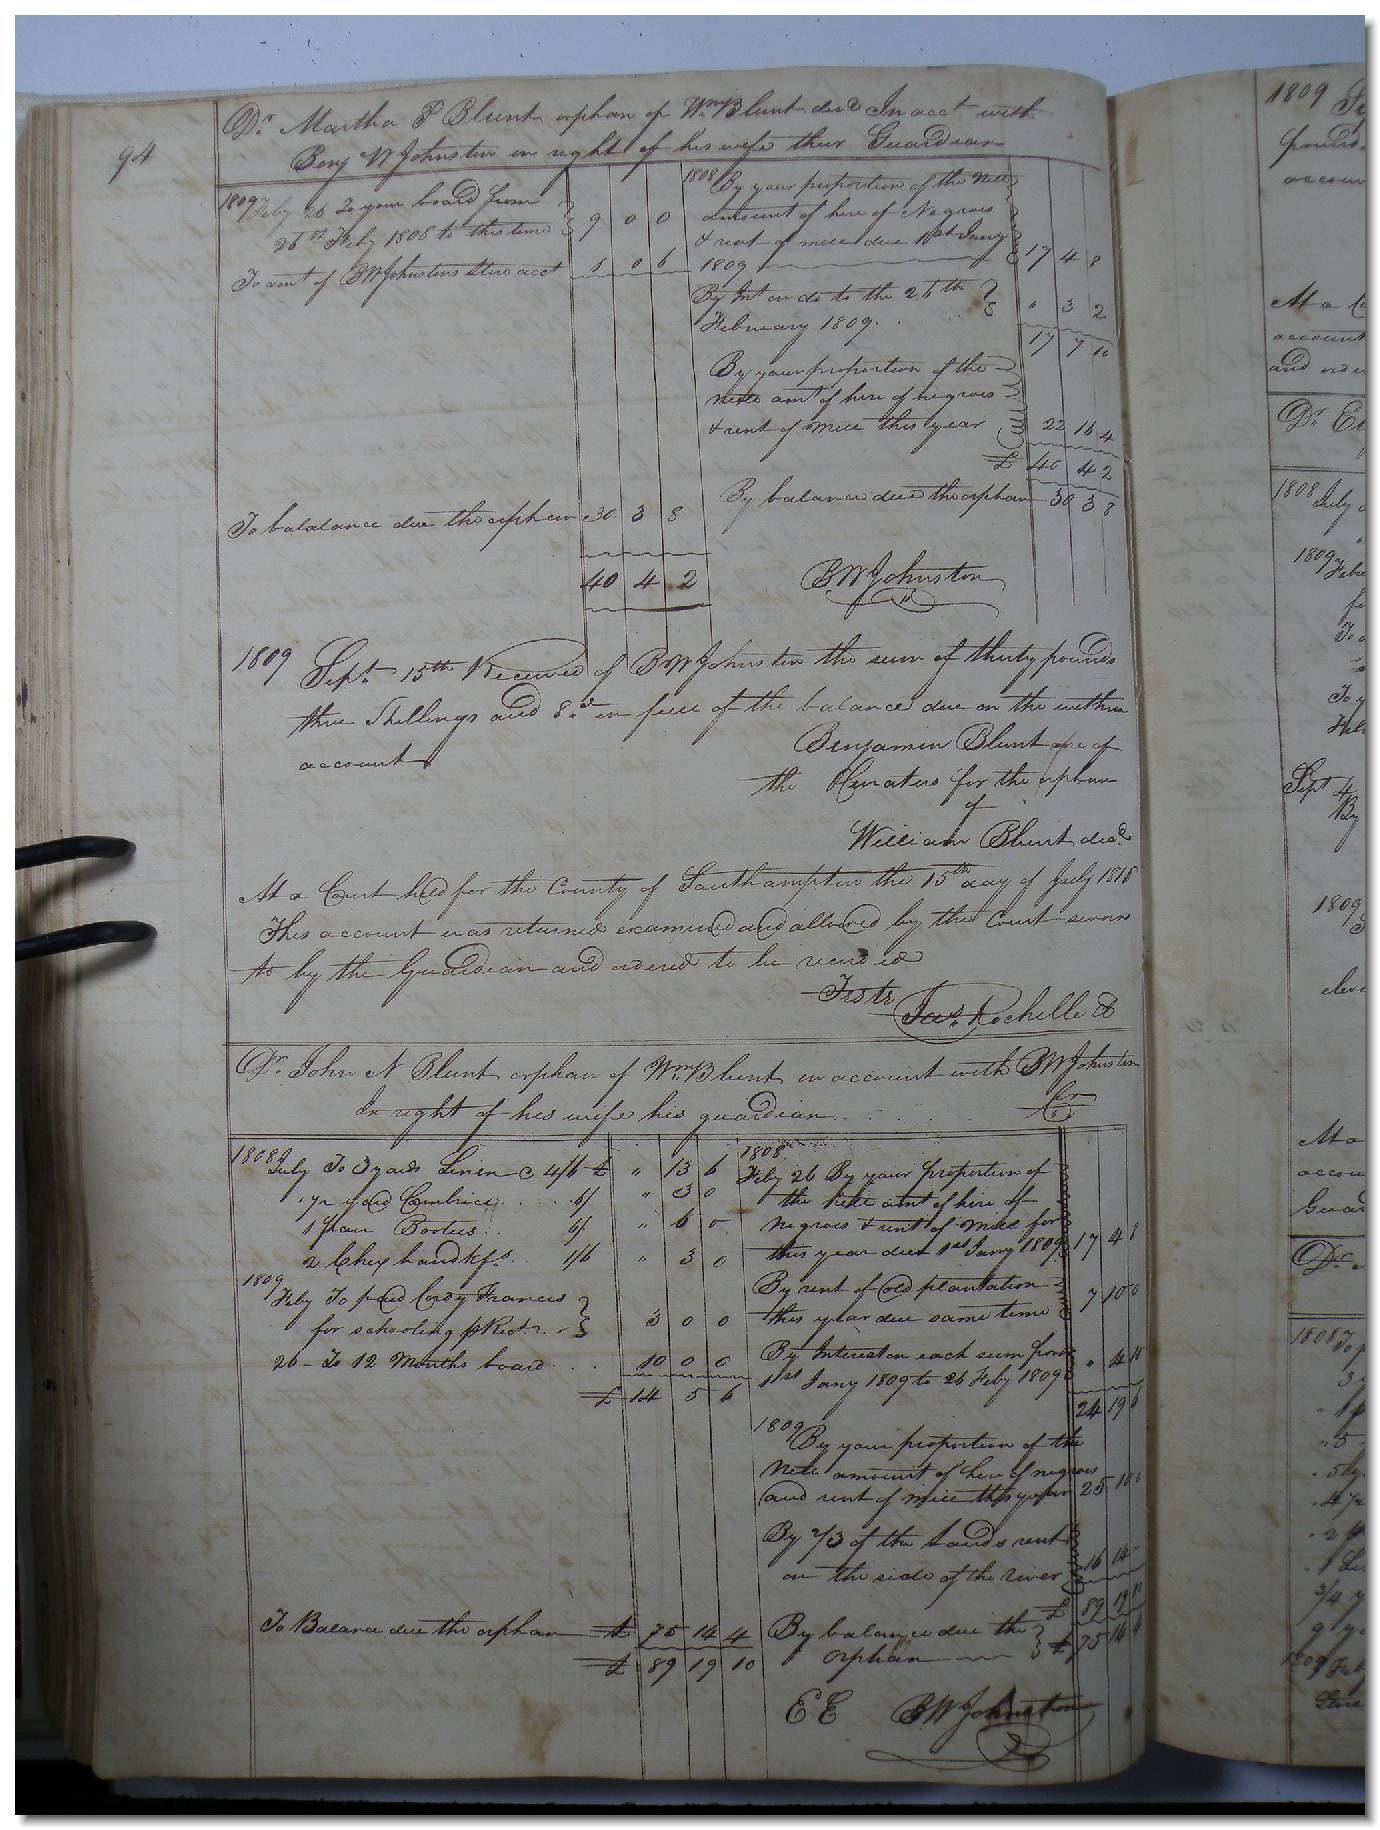 94
Dr Martha P Blunt orphan of Wm Blunt decd In acct with
Benj W Johnston in right of his wife their Guardian
1809 Feby 26 To your board from
26th Feby 1808 to this time 9 0 0
To amt of BW Johnstons Store acct 1 0 6
To balalance due the orphan 30 3 8
40 4 2
1808 By your proportion of the Nett
amount of hire of Negroes
& rent of mill due 1st Jany
1809 17 4 8
By Int on do to the 26th
February 1809 . " 3 2
17 7 10
By your proportion of the
nett amt of hire of negroes
& rent of Mill this year 22 16 4
£ 40 4 2
By balance due the orphan 30 3 8
BW Johnston
1809 Sept 15th Received of BW Johnston the sum of thirty pounds
three Shillings and 8d in full of the balance due on the within
account
Benjamin Blunt one of
the Curators for the orphan
of
William Blunt decd
At a Court held for the County of Southampton the 15th day of July 1816
This account was returned examined and allowed by the Court sworn
to by the Guardian and ordered to be recorded
Teste
Jas. Rochelle Cl
Dr. John N Blunt orphan of Wm Blunt in account with BW Johnston
In right of his wife his guardian Cr
1808 July To 3 yards Linen @ 4/6 £ " 13 6
1/2 yard Cambrick 6/ " 3 0
1 pair Bootees 6/ " 6 0
2 Chex handkfs 1/6 " 3 0
1809
Feby To paid Cordy Francis
for schooling p Rect. 3 0 0
26 - To 12 Months board 10 0 0
£ 14 5 6
To Balance due the orphan £ 75 14 4
£ 89 19 10
1808
Feby 26 By your proportion of
the nett amt of hire of
negroes & rent of Mill for
this year due 1st Jany 1809 17 4 8
By rent of Old plantation
this year due same time 7 10 0
By Interest on each sum from
1st Jany 1809 to 26 Feby 1809 " 4 10
24 19 6
1809
By your proportion of the
Nett amount of hire of negroes
and rent of mill this year 25
By 2/3 of the Lands rent
on the side of the river 16 14
£ 89 19 10
By balance due the
orphan £ 75 14 4
EE BW Johnston
1809
pounds
account
At a Co
account
and orde
Dr
1808 July
1809
Feb
To
Sept 4
By
1809
At a
accou
Guar
Dr.
1808 To p
3/4 y
9 y
1809 Feb